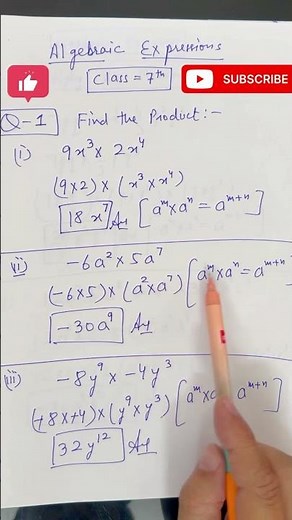 Algebraic Expressions
Class = 7th
SUBSCRIBE
Q-1 Find the Product:-
(i) 9x³ × 2x⁴
(9×2) × (x³ × x⁴)
18x⁷ Ans [aᵐ × aⁿ = aᵐ⁺ⁿ]
(ii) -6a² × 5a⁷
(-6×5) × (a² × a⁷) [aᵐ × aⁿ = aᵐ⁺ⁿ
-30a⁹ Ans
(iii) -8y⁹ × -4y³
(+8×+4) × (y⁹ × y³) [aᵐ × aᵐ⁺ⁿ]
32y¹² Ans